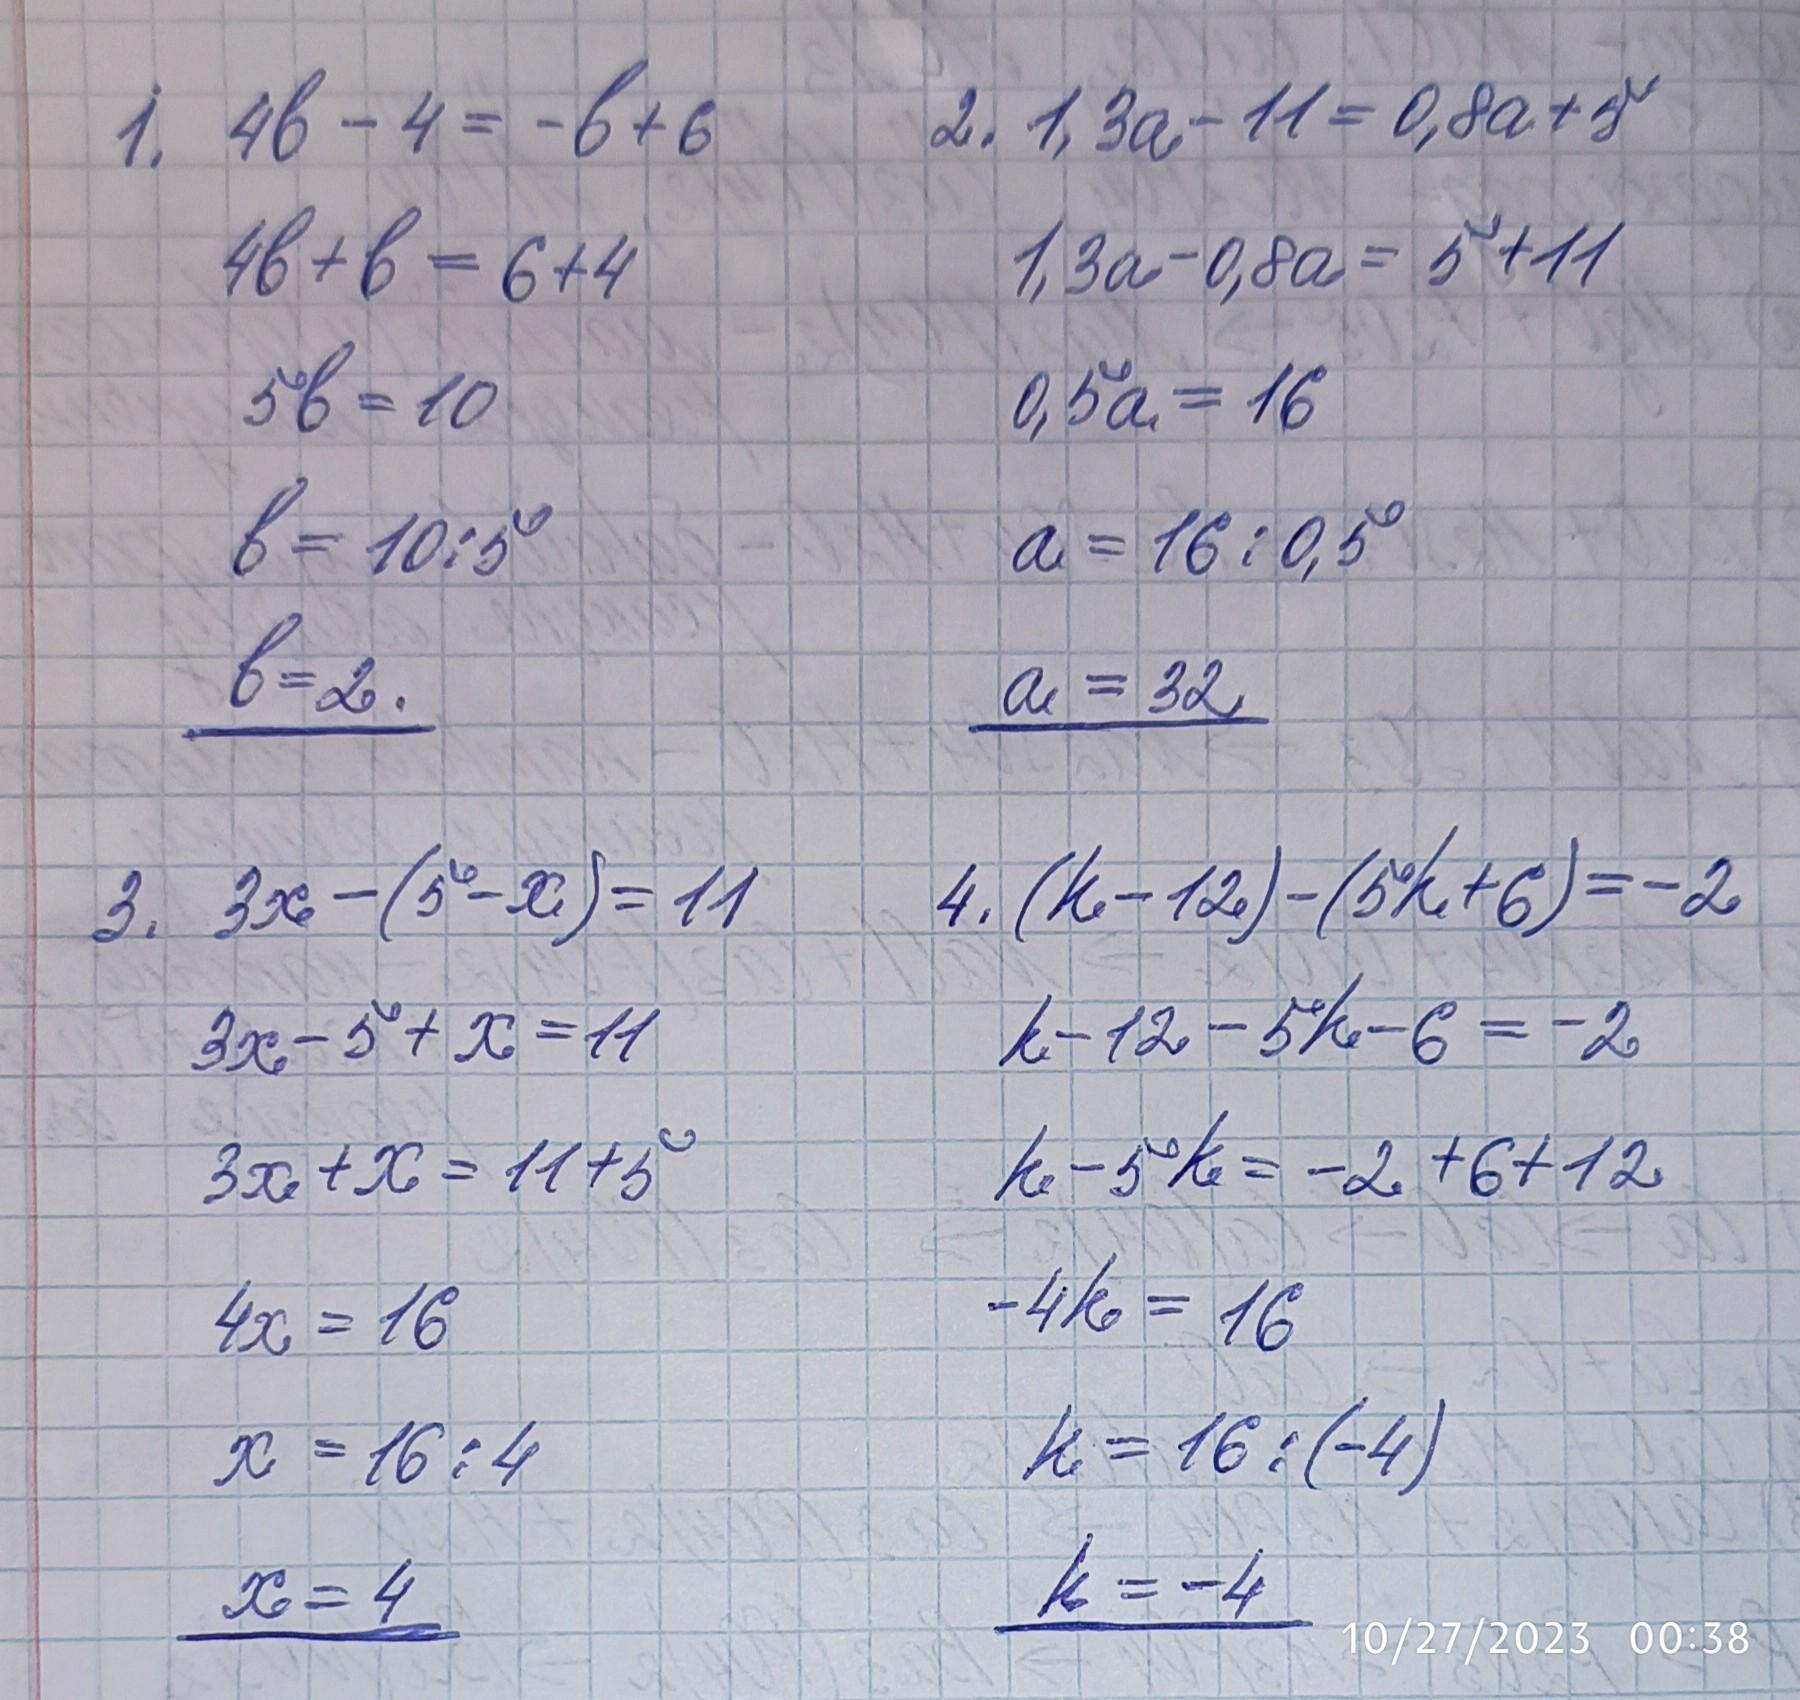 1. 4b - 4 = -b + 6
4b + b = 6 + 4
5b = 10
b = 10 : 5
b = 2.
2. 1,3a - 11 = 0,8a + 5
1,3a - 0,8a = 5 + 11
0,5a = 16
a = 16 : 0,5
a = 32
3. 3x - (5 - x) = 11
3x - 5 + x = 11
3x + x = 11 + 5
4x = 16
x = 16 : 4
x = 4
4. (k - 12) - (5k + 6) = -2
k - 12 - 5k - 6 = -2
k - 5k = -2 + 6 + 12
-4k = 16
k = 16 : (-4)
k = -4
10/27/2023 00:38